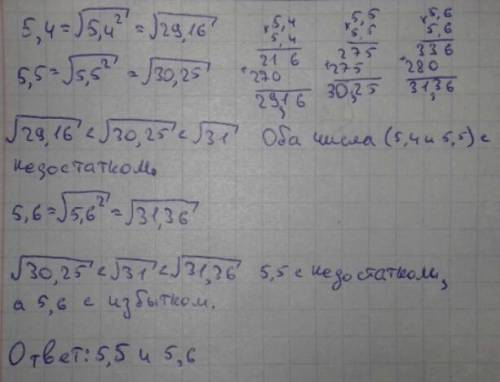 5,4=√5,4²=√29,16
5,5=√5,5²=√30,25
× 5,4
5,4
216
+270
29,16
× 5,5
5,5
275
+275
30,25
× 5,6
5,6
336
+280
31,36
√29,16 < √30,25 < √31 Оба числа (5,4 и 5,5) с
недостатком.
5,6=√5,6²=√31,36
√30,25 < √31 < √31,36 5,5 с недостатком,
а 5,6 с избытком.
Ответ: 5,5 и 5,6